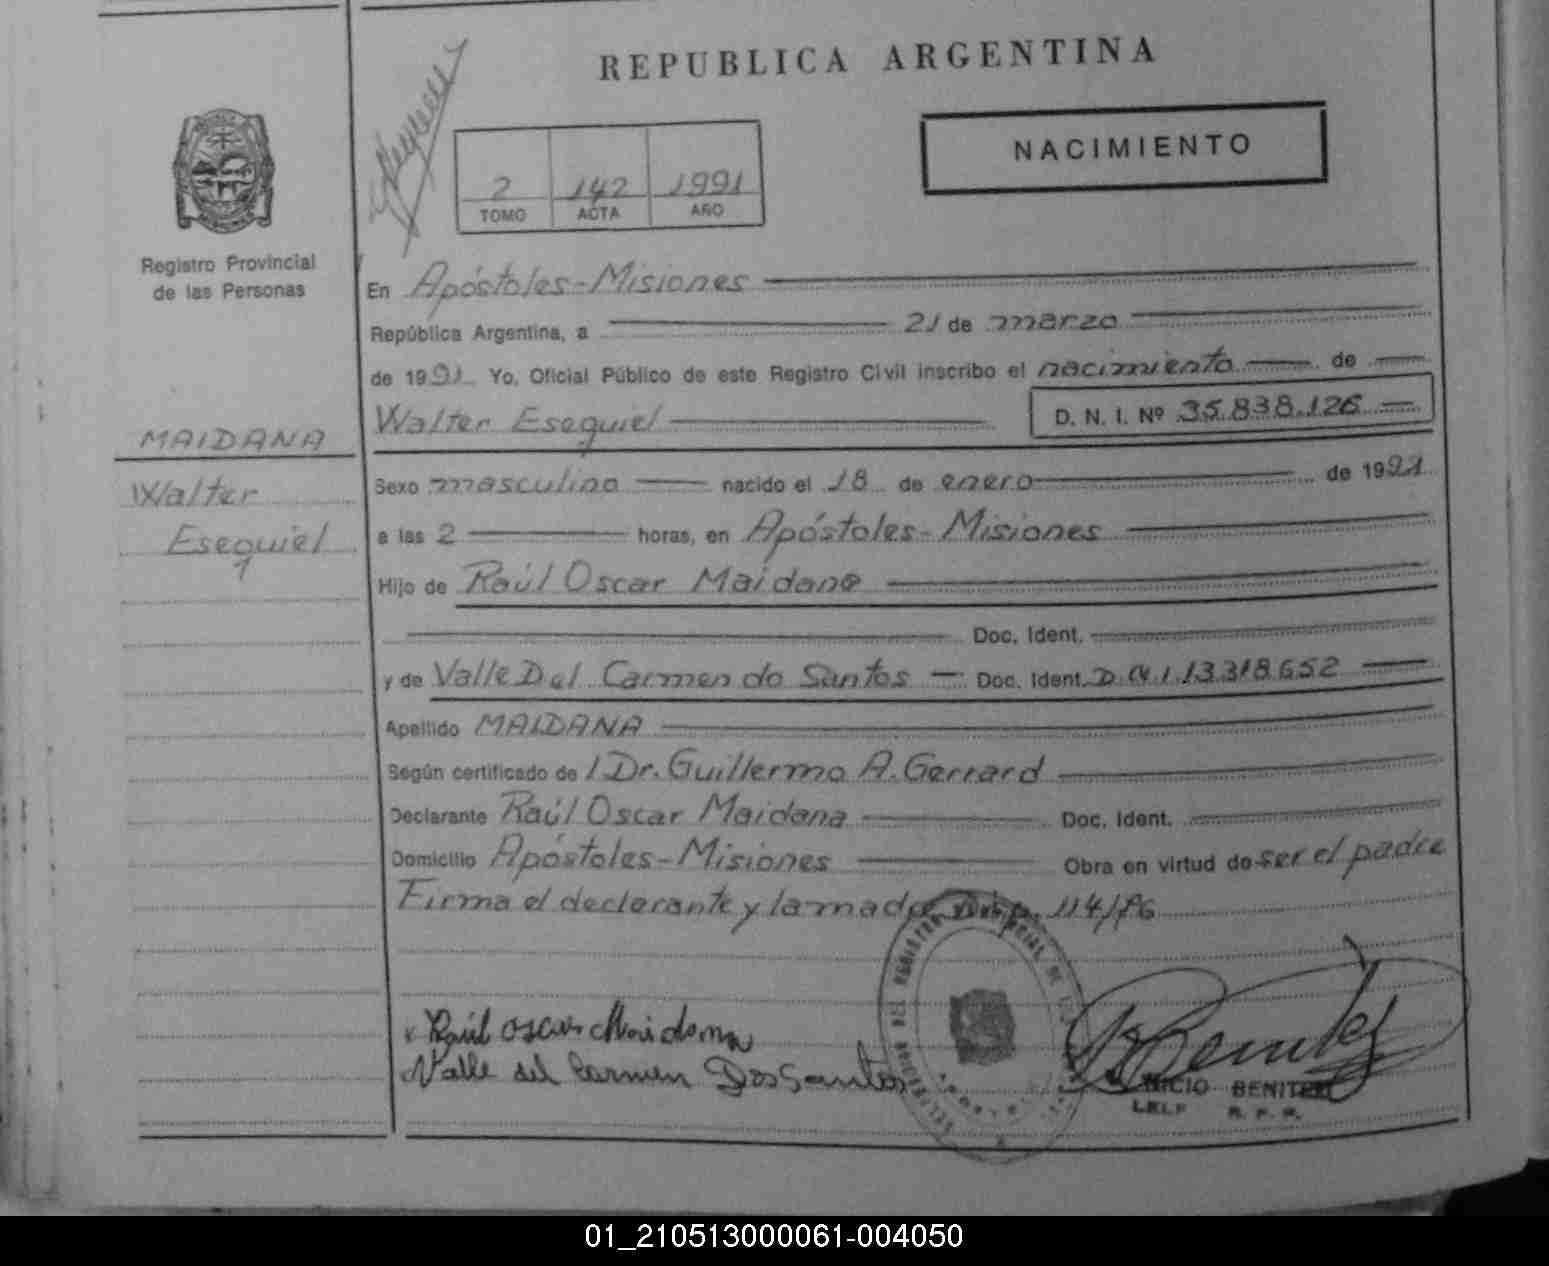 REPUBLICA ARGENTINA
NACIMIENTO
2 142 1991
TOMO ACTA AÑO
Registro Provincial
de las Personas
En Apóstoles-Misiones
República Argentina, a 21 de marzo
de 1991 Yo, Oficial Público de este Registro Civil inscribo el nacimiento de
Walter Esequiel D. N. I. Nº 35.838.126
MAIDANA
Walter
Esequiel
Sexo masculino nacido el 18 de enero de 1991
a las 2 horas, en Apóstoles-Misiones
Hijo de Raúl Oscar Maidana
Doc. Ident.
y de Valle Del Carmen do Santos Doc. Ident. D.N.I.13.318.652
Apellido MAIDANA
Según certificado de l Dr. Guillermo A. Gerrard
Declarante Raúl Oscar Maidana Doc. Ident.
Domicilio Apóstoles-Misiones Obra en virtud de ser el padre
Firma el declarante y la madre 114/76
Raúl oscar Maidana
Valle del Carmen Dos Santos
BENITEZ
01_210513000061-004050